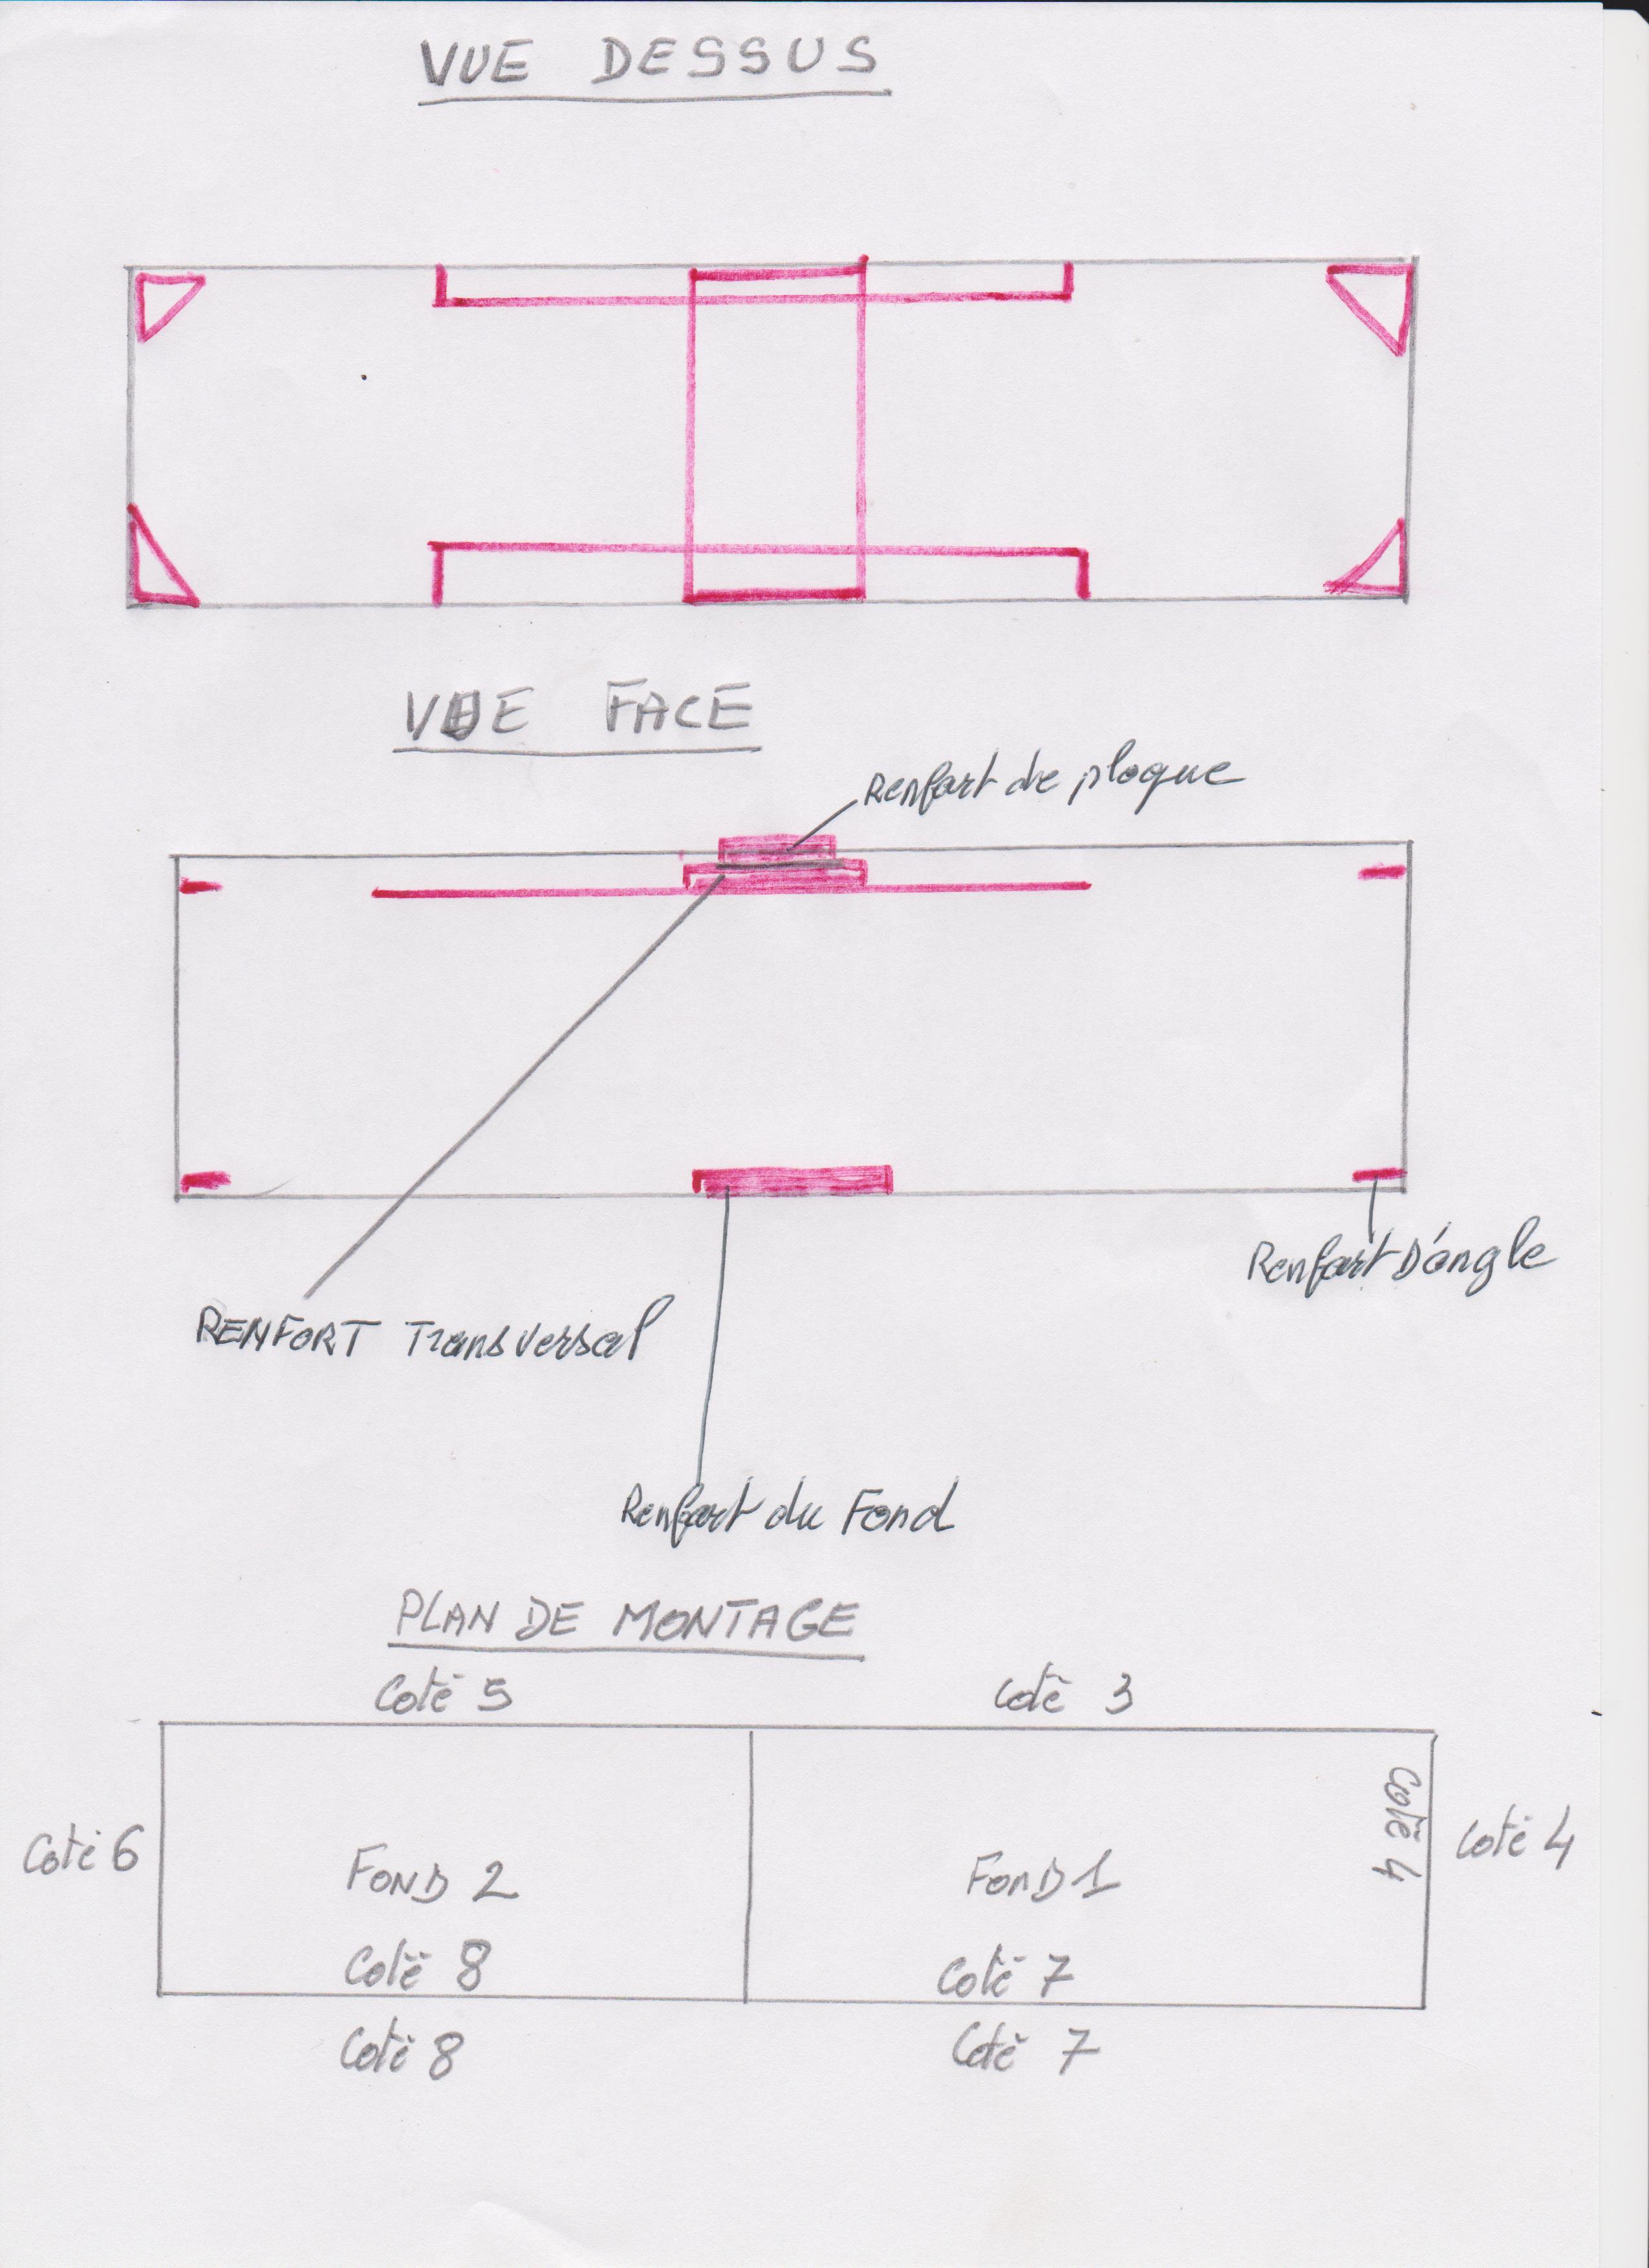 VUE DESSUS
VUE FACE
Renfort de plaque
Renfort D'angle
RENFORT Transversal
Renfort du Fond
PLAN DE MONTAGE
Coté 5 Coté 3
Coté 4
Coté 6 Coté 4
FOND 2 FOND 1
Coté 8 Coté 7
Coté 8 Coté 7